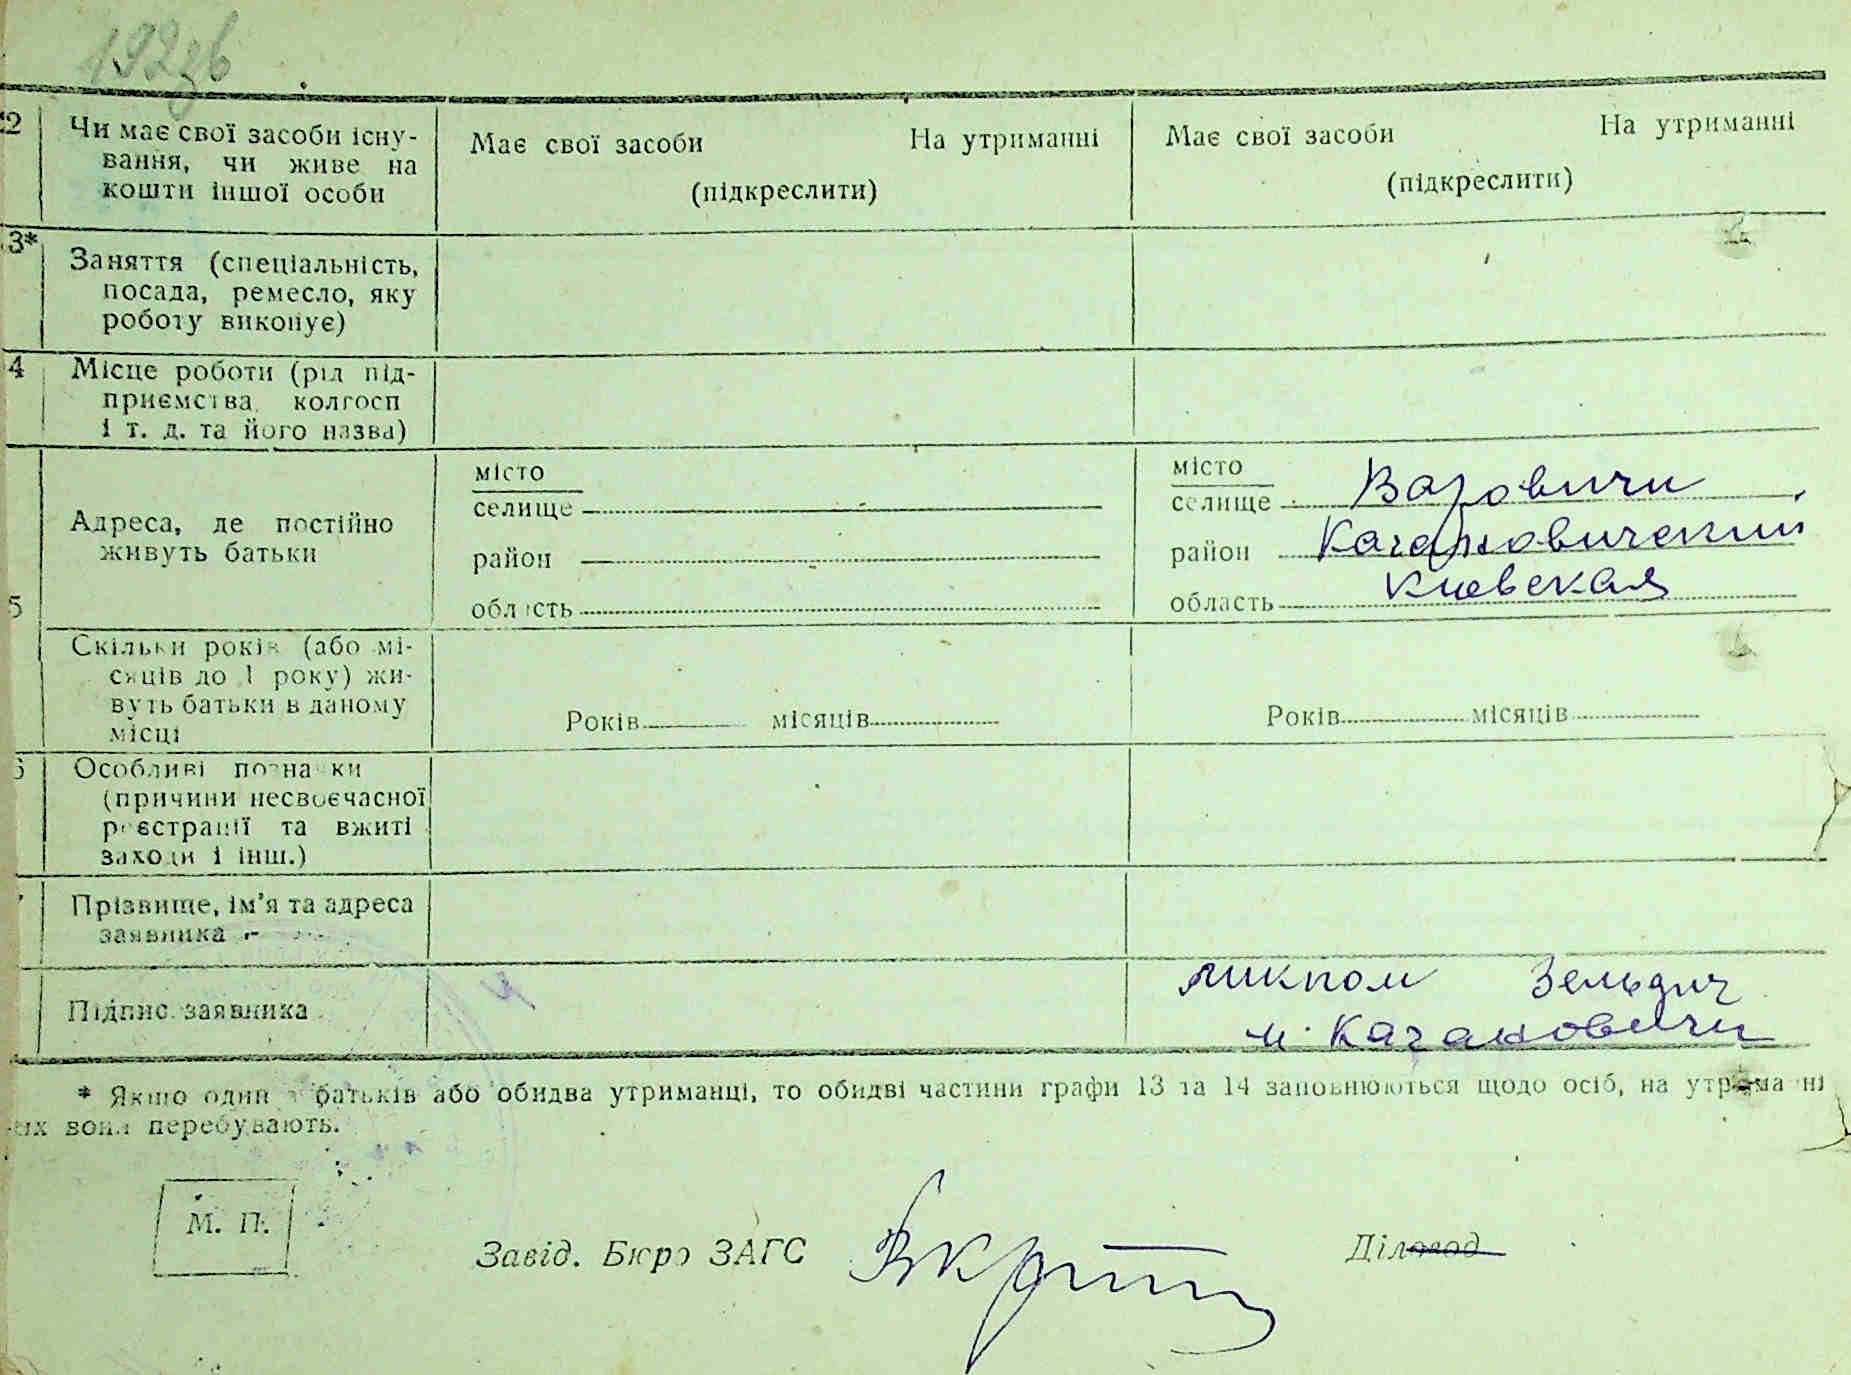 192зв
12 Чи має свої засоби існу-
вання, чи живе на
кошти іншої особи
Має свої засоби На утриманні
(підкреслити)
Має свої засоби На утриманні
(підкреслити)
3* Заняття (спеціальність,
посада, ремесло, яку
роботу виконує)
4 Місце роботи (рід під-
приємства, колгосп
і т. д. та його назва)
5 Адреса, де постійно
живуть батьки
місто
селище
район
область
місто
селище Варовичи,
район Кагановичский
область Киевская
Скільки років (або мі-
сяців до 1 року) жи-
вуть батьки в даному
місці
Років місяців
Років місяців
6 Особливі познайки
(причини несвоєчасної
реєстрації та вжиті
заходи і інш.)
Прізвище, ім'я та адреса
заявника
Підпис заявника
Зельдич
м. Кагановичи
* Якщо один з батьків або обидва утриманці, то обидві частини графи 13 та 14 заповнюються щодо осіб, на утриманні
яких вони перебувають.
М. П.
Завід. Бюро ЗАГС
Діловод